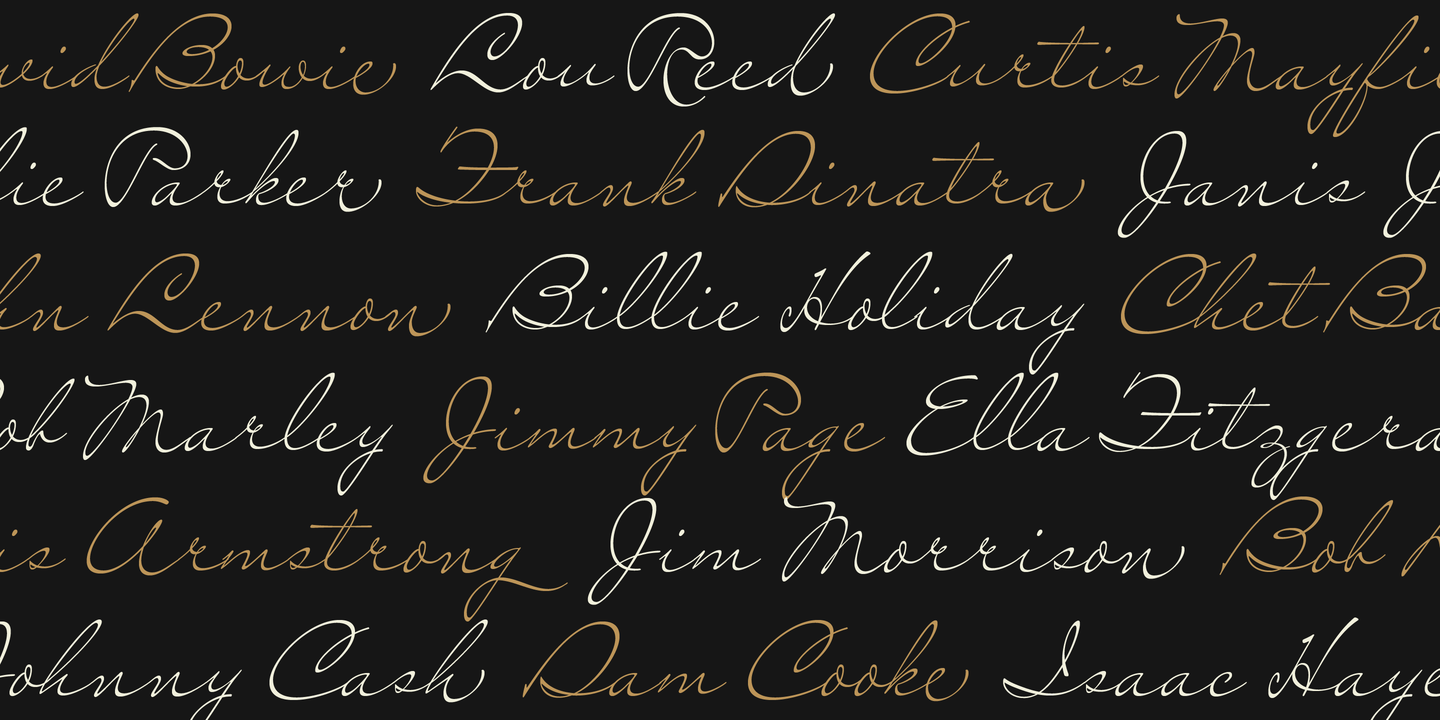 vid Bowie Lou Reed Curtis Mayfi
lie Parker Frank Sinatra Janis J
hn Lennon Billie Holiday Chet Ba
ob Marley Jimmy Page Ella Fitzgera
is Armstrong Jim Morrison Bob
Johnny Cash Sam Cooke Isaac Haye